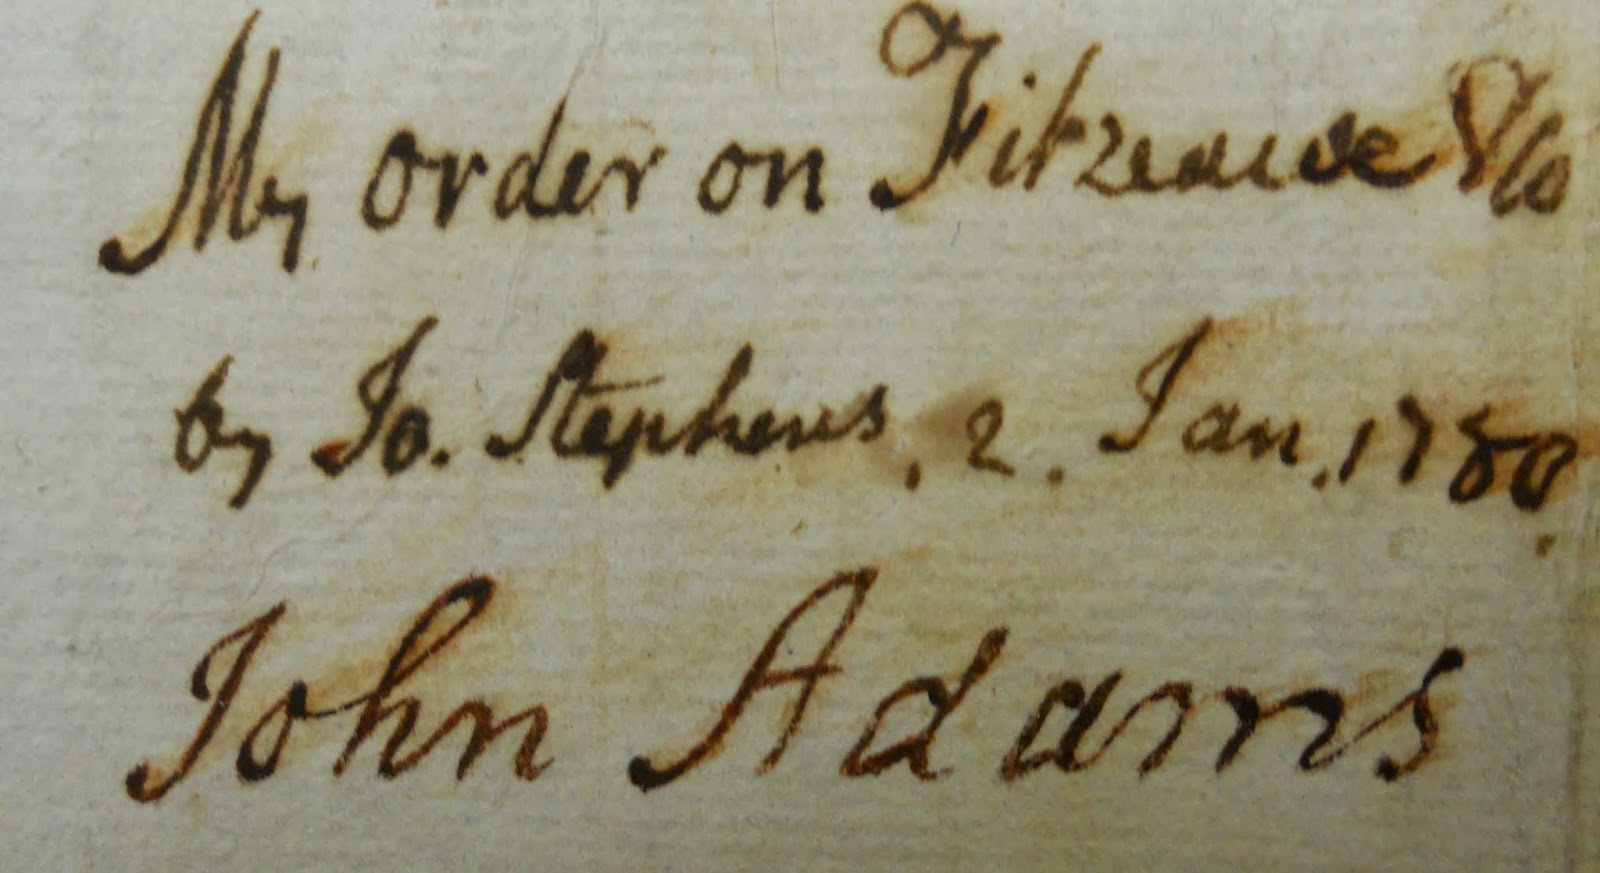 My order on &Co
by Jo. Stephens, 2. Jan. 1780.
John Adams